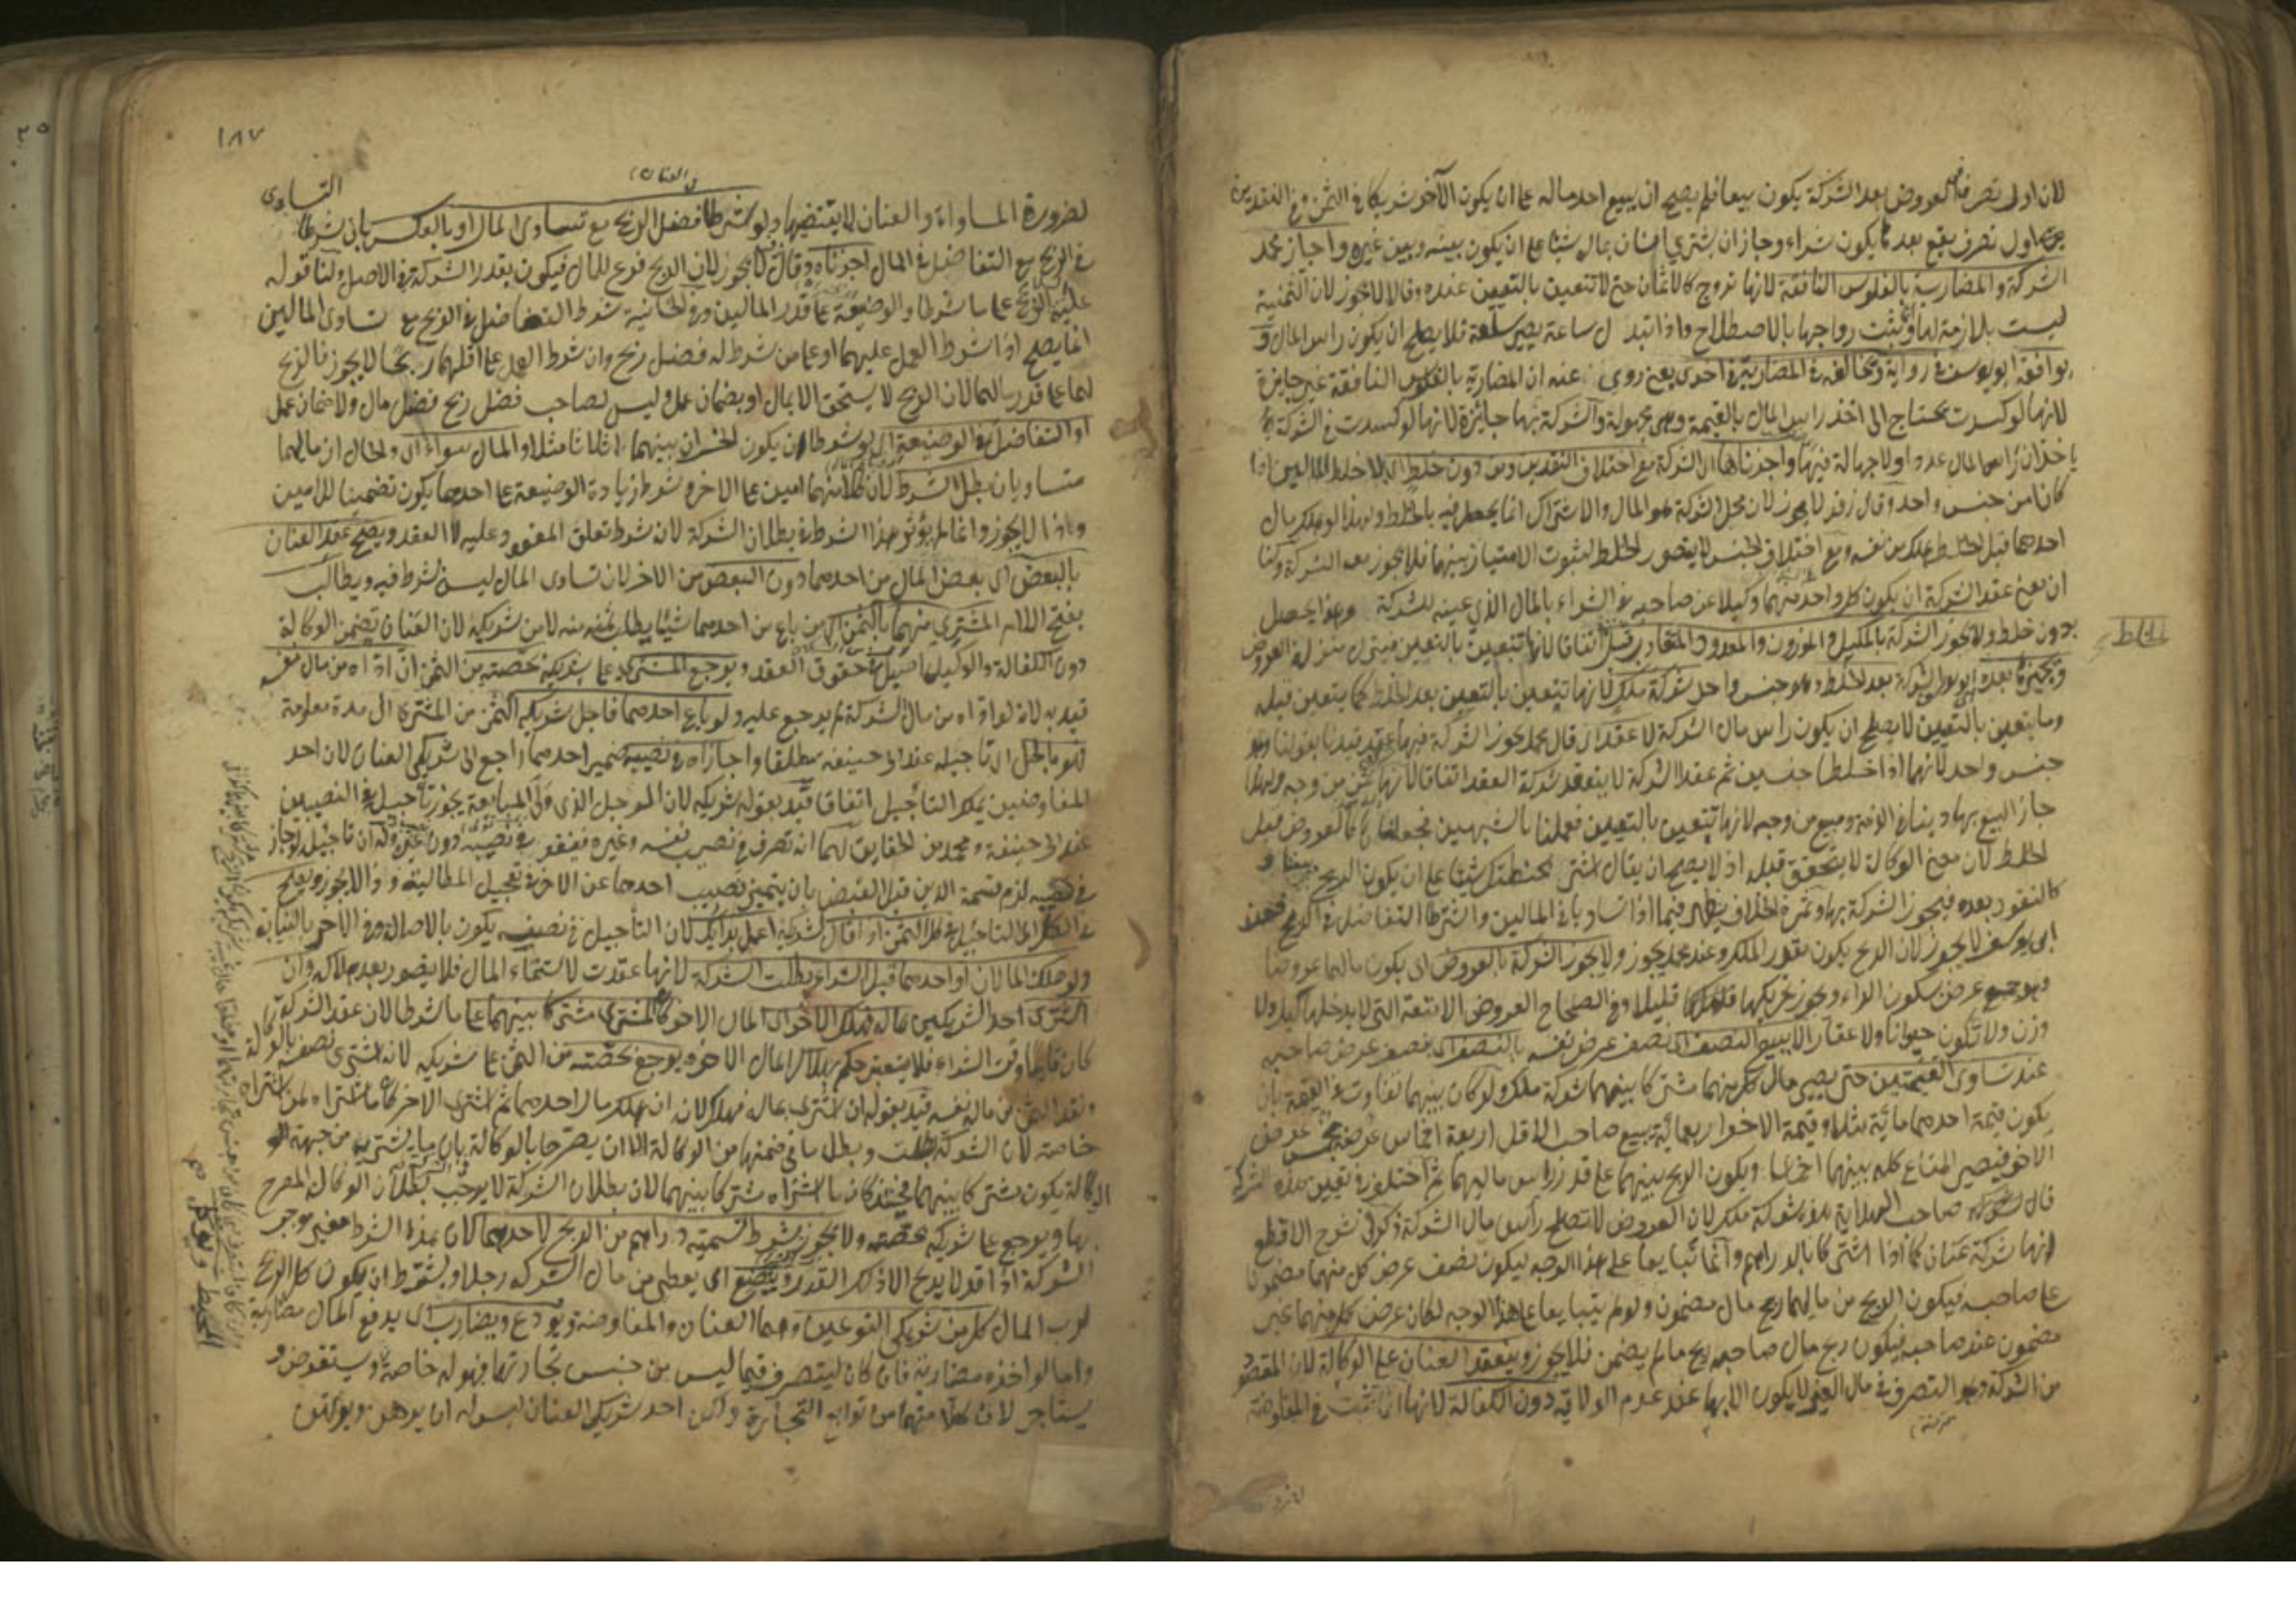 لان اول تصرف في العروض بعد الشركة يكون بيعا فلم يصح ان يبيع احد ماله على ان يكون الآخر شريكا في الثمن وفي النقدين
اول تصرف يقع بعد ما يكون شراء وجاز ان يشتري انسان بمال شيئا على ان يكون بينه وبين غيره واجاز محمد
الشركة والمضاربة بالفلوس النافقة لانها تروج كالاثمان حتى لا تتعين بالتعيين عنده وقالا لا يجوز لان الثمنية
ليست بلازمة لها وانما يثبت رواجها بالاصطلاح واذا تبدل ساعة يصير سلعة فلا يصلح ان يكون راس المال و
يوافقه ابو يوسف في رواية ويخالفه في المضاربة في اخرى يعني روي عنه ان المضاربة بالفلوس النافقة غير جايزة
لانها لو كسدت يحتاج الى اخذ راس المال بالقيمة وهي مجهولة والشركة بها جايزة لانها لو كسدت في الشركة
ياخذان راس المال عددا ولا جهالة فيها واجزناها اي الشركة مع اختلاف النقدين ومن دون خلط اي بلا خلط المالين اذا
كانا من جنس واحد وقال زفر لا يجوز لان محل الشركة هو المال والاشتراك انما يحصل فيه بالخلط ولهذا لو هلك مال
احدهما قبل الخلط هلك من نفسه ومع اختلاف الجنس لا يتصور الخلط لثبوت الامتياز بينهما فلا يجوز معه الشركة ولنا
ان معنى عقد الشركة ان يكون كل واحد منهما وكيلا عن صاحبه في الشراء بالمال الذي عينه للشركة وهذا يحصل
بدون خلط ولا يجوز الشركة بالمكيل والموزون والمعدود المتقارب قبل الخلط اتفاقا لانها تتعين بالتعيين فينزل منزلة العروض
ويجيزه بعده اي يجوز الشركة بعد الخلط وهو جنس واحد شركة ملك لانها تتعين بالتعيين بعد الخلط كما يتعين قبله
وما يتعين بالتعيين لا يصلح ان يكون راس مال الشركة لا عقدا اي قال محمد يجوز الشركة فيها عقدا قيدنا بقولنا وهو
جنس واحد لانهما اذا خلطا جنسين ثم عقدا الشركة لا ينعقد شركة العقد اتفاقا لانها ثمن من وجه ولهذا
جاز البيع بها دينا في الذمة ومبيع من وجه لانها تتعين بالتعيين فعملنا بالشبهين فجعلناها كالعروض قبل
الخلط لان معنى الوكالة لا يتحقق قبله اذ لا يصح ان يقال اشتر بحنطتك شيئا على ان يكون الربح بيننا و
كالنقود بعده فيجوز الشركة بها وثمرة الخلاف يظهر فيما اذا تساويا في المالين واشترطا التفاضل في الربح فعند
ابي يوسف لا يجوز لان الربح يكون بقدر الملك وعند محمد يجوز ولا يجوز الشركة بالعروض اي يكون مالهما عروضا
وهو جمع عرض بسكون الراء ويجوز تحريكها قليلا وفي الصحاح العروض الامتعة التي لا يدخلها كيل ولا
وزن ولا تكون حيوانا ولا عقارا الا ببيع النصف اي نصف عرض نفسه بالنصف اي بنصف عرض صاحبه
عند تساوي القيمتين حتى يصير مال كل منهما مشتركا بينهما شركة ملك ولو كان بينهما تفاوت في القيمة بان
يكون قيمة احدهما مائة مثلا وقيمة الآخر اربعمائة يبيع صاحب الاقل اربعة اخماس عرضه بخمس عرض
الآخر فيصير المتاع كله بينهما اخماسا ويكون الربح بينهما على قدر راس ماليهما ثم اختلفوا في تعيين هذه الشركة
قال صاحب الهداية هذه شركة ملك لان العروض لا تصلح راس مال الشركة ذكر في شرح الاقطع
انها شركة عنان كما اذا اشتركا بالدراهم وانما تبايعا على هذا الوجه ليكون نصف عرض كل منهما مضمونا
على صاحبه فيكون الربح من ماليهما ربح مال مضمون ولو لم يتبايعا على هذا الوجه لكان عرض كل منهما غير
مضمون عند صاحبه فيكون ربح مال صاحبه ربح ما لم يضمن فلا يجوز وينعقد العنان على الوكالة لان المقصود
من الشركة وهو التصرف في مال الغير لا يكون الا بها عند عدم الولاية دون الكفالة لانها انما تثبت في المفاوضة
الخلط
١٨٧
لضرورة المساواة والعنان لا يقتضيها ولو شرطا فضل الربح مع تساوي المال او بالعكس بان شرطا التساوي
في الربح مع التفاضل في المال اجزناه وقال لا يجوز لان الربح فرع للمال فيكون بقدر الشركة في الاصل ولنا قوله
عليه الربح على ما شرطا والوضيعة على قدر المالين وفي الخانية شرط التفاضل في الربح مع تساوي المالين
انما يصلح اذا شرط العمل عليهما او على من شرط له فضل ربح وان شرط العمل على اقلهما ربحا لا يجوز فالربح
لهما على قدر مالهما لان الربح لا يستحق الا بمال او بضمان عمل وليس لصاحب فضل ربح فضل مال ولا ضمان عمل
او التفاضل في الوضيعة اي لو شرطا ان يكون الخسران بينهما اثلاثا مثلا والمال سواء اي والحال ان مالهما
متساويان بطل الشرط لان كلا منهما امين على الآخر وشرط زيادة الوضيعة على احدهما يكون تضمينا للامين
وذا لا يجوز وانما لم يؤثر هذا الشرط في بطلان الشركة لان شرط تعلق المعقود عليه لا العقد ويصح عقد العنان
بالبعض اي ببعض المال من احدهما دون البعض من الآخر لان تساوي المال ليس بشرط فيه ويطالب
بفتح اللام المشتري منهما بالثمن اي من باع من احدهما شيئا يطلب ثمنه منه لا من شريكه لان العنان يتضمن الوكالة
دون الكفالة والوكيل اصيل في حقوق العقد ويرجع المشتري على شريكه بحصته من الثمن ان اداه من مال نفسه
قيد به لانه لو اداه من مال الشركة لم يرجع عليه ولو باع احدهما فاجل شريكه الثمن من المشتري الى مدة معلومة
فهو باطل اي تاجيله عند ابي حنيفة مطلقا واجازاه في نصيبه ضمير احدهما راجع الى شريكي العنان لان احد
المفاوضين يملك التأجيل اتفاقا قيد بقوله شريكه لان المؤجل الذي ولي المبايعة يجوز تأجيله في النصيبين
عند ابي حنيفة ومحمد من الحقايق لهما انه تصرف في نصيب نفسه وغيره فينفذ في نصيبه دون غيره وله ان تاجيله لو جاز
في نصيبه لزم قسمة الدين قبل القبض بان يتميز نصيب احدهما عن الآخر في تعجيل المطالبة وذا لا يجوز ويصلح
في الكل اي التاجيل في كل الثمن اذا قال شريكه اعمل برأيك لان التأجيل في نصيبه يكون بالاصالة وفي الآخر بالنيابة
ولو هلك المالان او احدهما قبل الشراء بطلت الشركة لانها عقدت لاستنماء المال فلا يتصور بعد هلاكه وان
اشترى احد الشريكين بماله فهلك المال الآخر كان المشترى مشتركا بينهما على ما شرطا لان عقد الشركة
كان قايما وقت الشراء فلا يتغير حكمه بهلاك المال الآخر ويرجع بحصته من الثمن على شريكه لانه اشترى نصفه بالوكالة
ونقد الثمن من مال نفسه قيد بقوله ان اشترى بماله فهلك لانه ان هلك مال احدهما ثم اشترى الآخر كان ما اشتراه لمن اشتراه
خاصة لان الشركة بطلت وبطل ما في ضمنها من الوكالة الا ان يصرحا بالوكالة بان ما يشتريه من جهة
الوكالة يكون مشتركا بينهما فحينئذ كان ما اشتراه مشتركا بينهما لان بطلان الشركة لا يوجب بطلان الوكالة المصرح
بها ويرجع على شريكه بحصته ولا يجوز شرط تسمية دراهم من الربح لاحدهما لان هذا الشرط
الشركة اذ قد لا يربح الا ذلك القدر ويبضع اي يعطي من مال الشركة رجلا ويشترط ان يكون كل الربح
لرب المال كل من شريكي النوعين وهما العنان والمفاوضة ويودع ويضارب اي يدفع المال مضاربة
واما لو اخذه مضاربة فان كان ليتصرف فيما ليس من جنس تجارتهما فهو له خاصة ويستقرض و
يستاجر لان كلا منهما من توابع التجارة ولكن احد شريكي العنان ليس له ان يرهن ويرتهن
المحيط